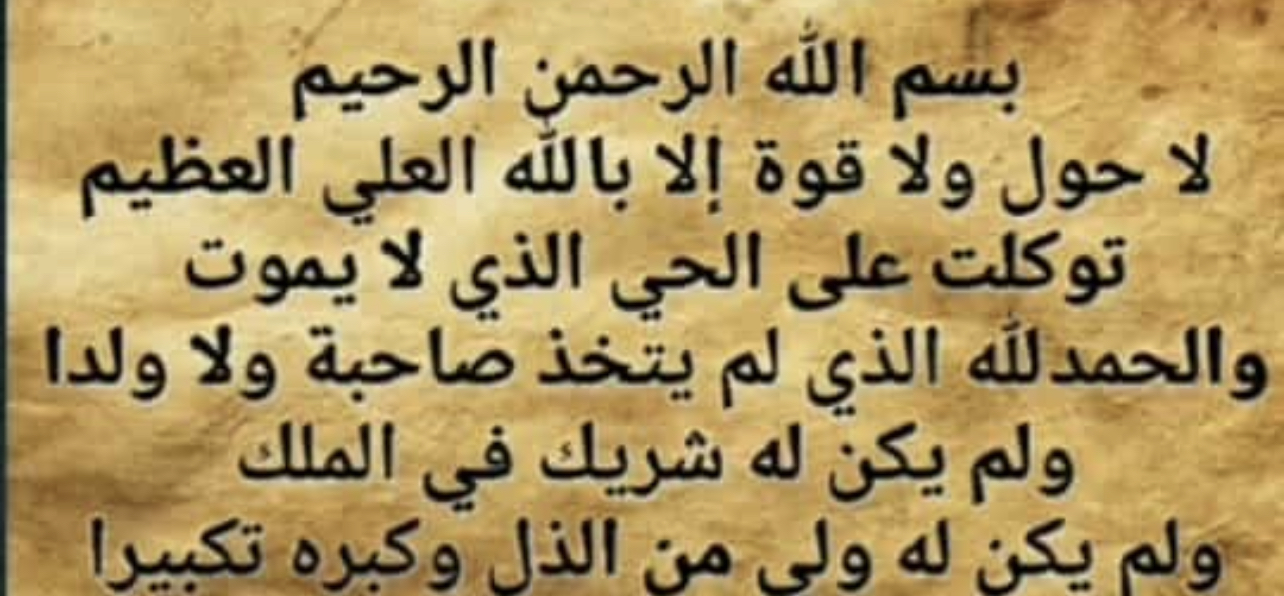 بسم الله الرحمن الرحيم
لا حول ولا قوة إلا بالله العلي العظيم
توكلت على الحي الذي لا يموت
والحمدلله الذي لم يتخذ صاحبة ولا ولدا
ولم يكن له شريك في الملك
ولم يكن له ولي من الذل وكبره تكبيرا